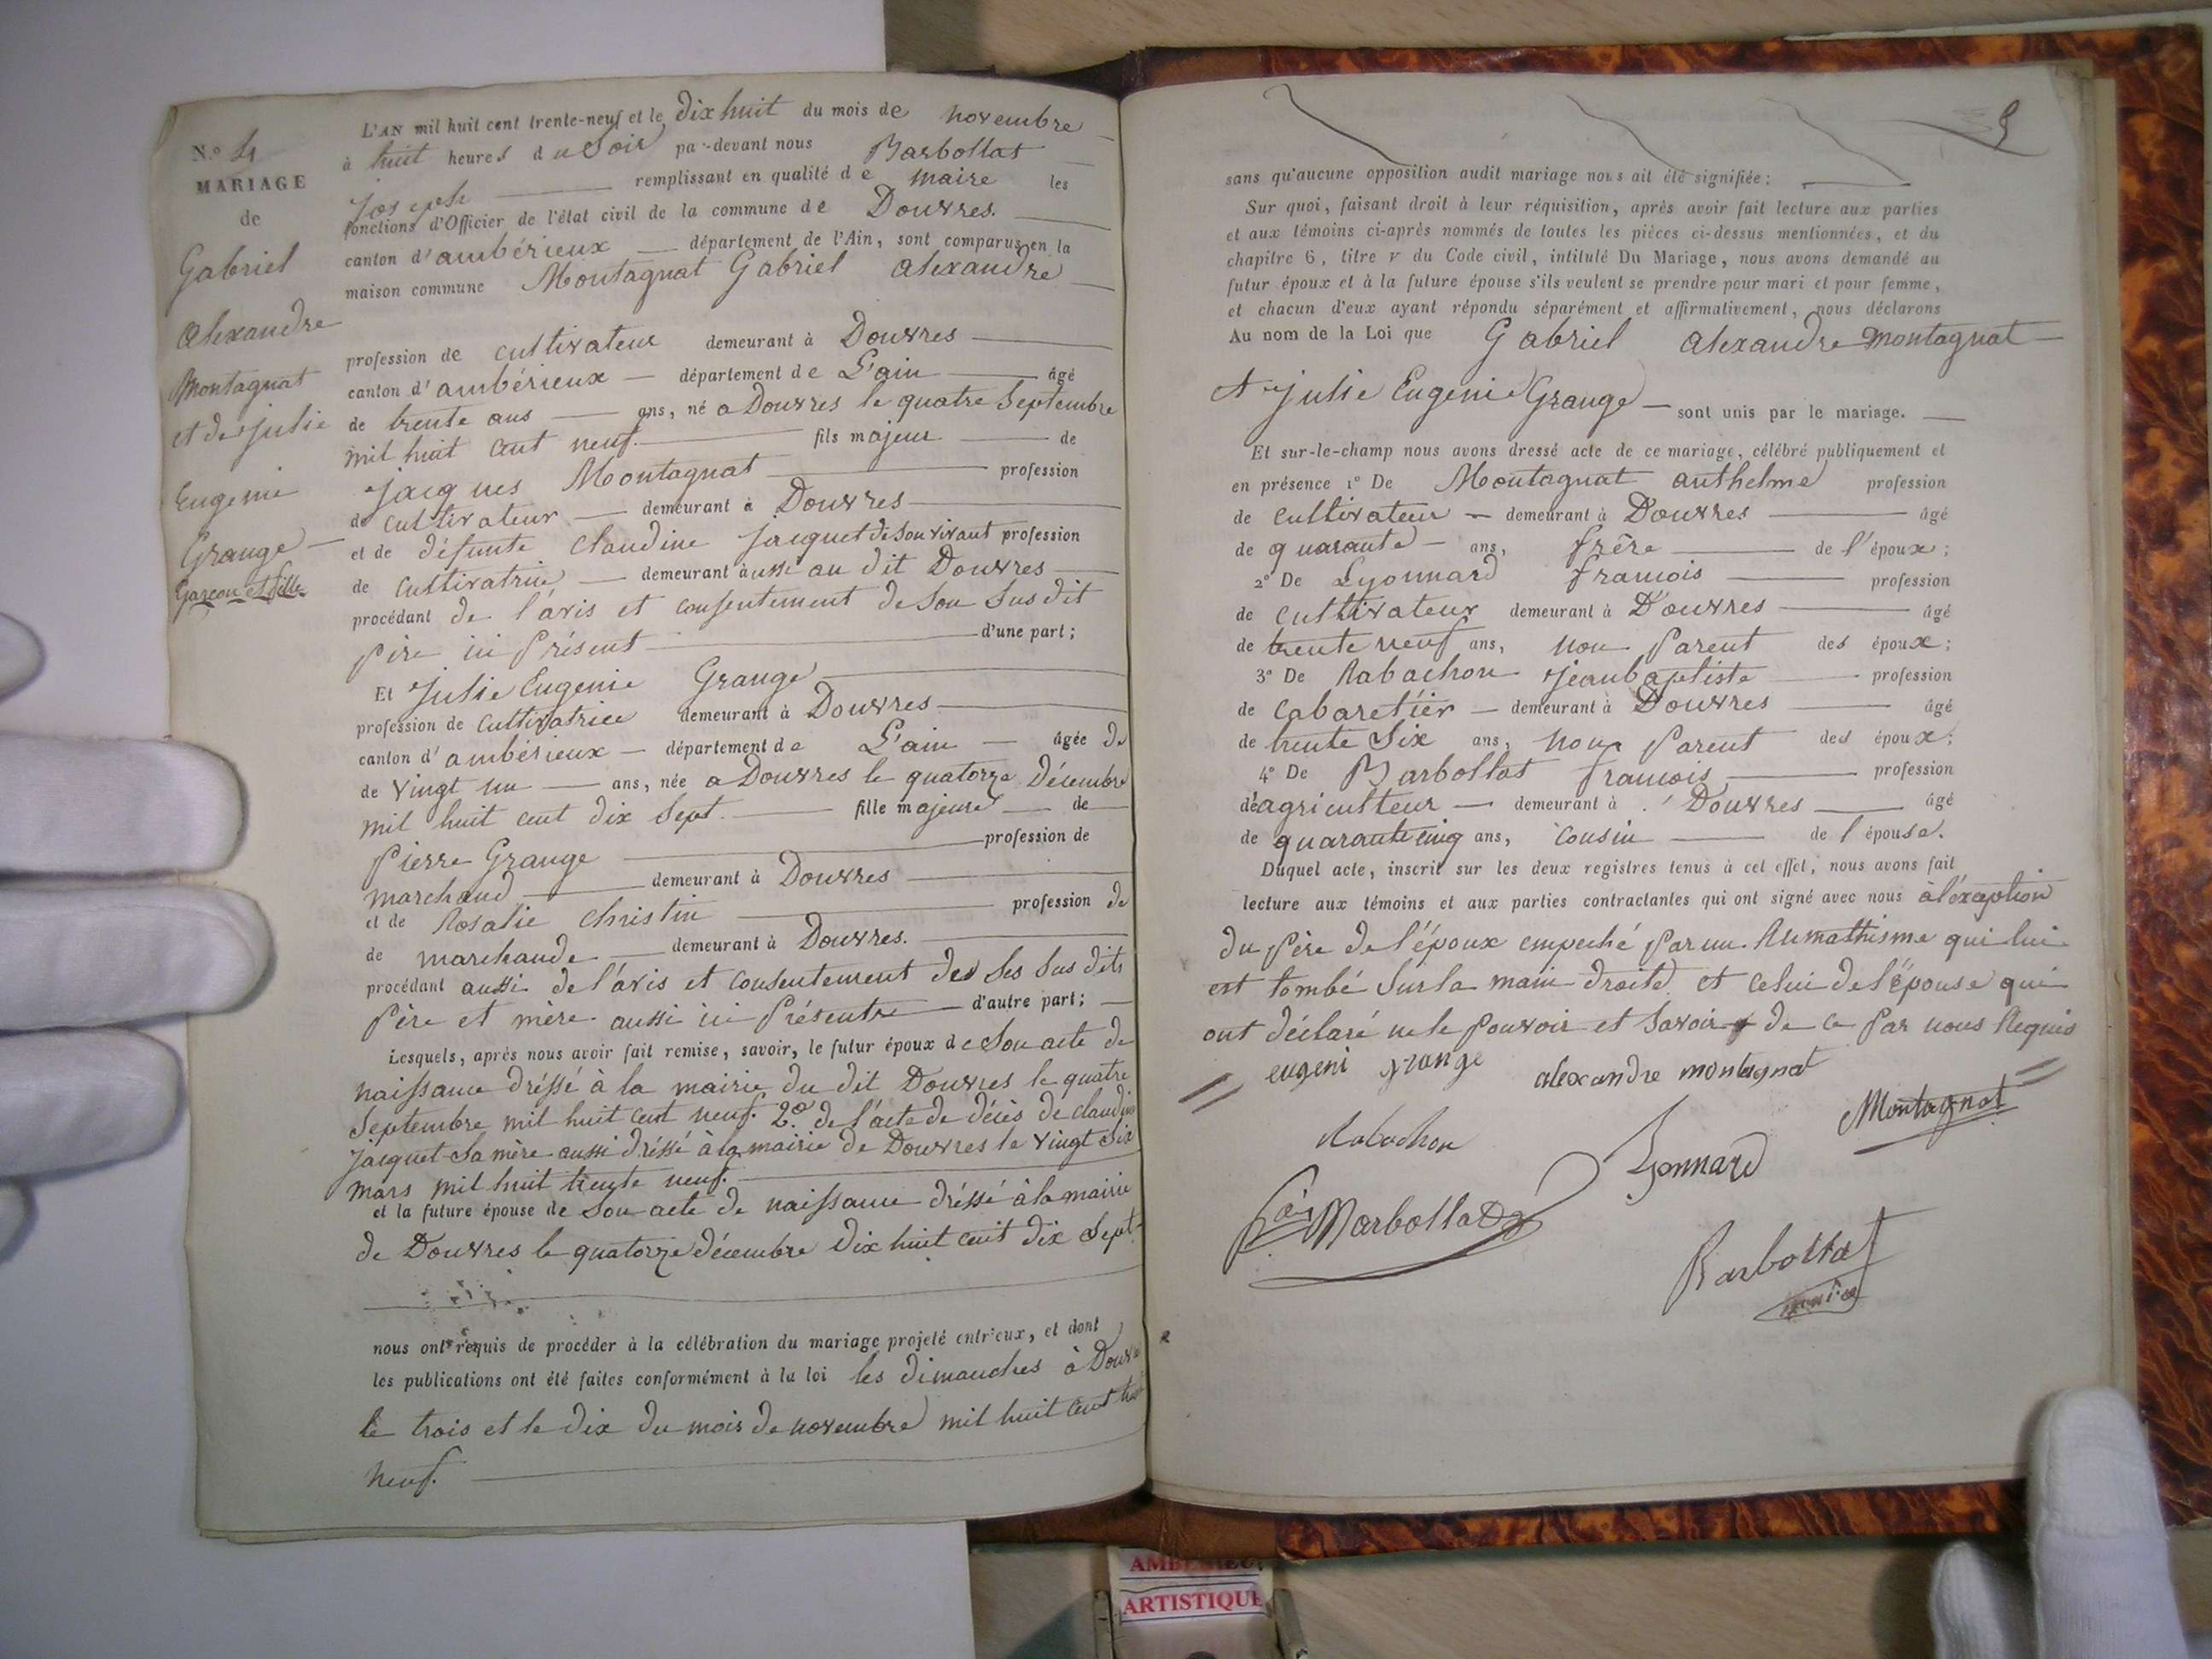 N.° 4
MARIAGE
de
Gabriel
Alexandre
Montagnat
et de julie
Eugenie
Grange
Garçon et fille
L'AN mil huit cent trente-neuf et le dix huit du mois de novembre
à huit heures du Soir par-devant nous Barbollat
joseph remplissant en qualité de maire les
fonctions d'Officier de l'état civil de la commune de Douvres.
canton d'ambérieux département de l'Ain, sont comparus en la
maison commune Montagnat Gabriel Alexandre
profession de cultivateur demeurant à Douvres
canton d'ambérieux département de L'ain âgé
de trente ans ans, né a Douvres le quatre Septembre
mil huit cent neuf. fils majeur de
jacques Montagnat profession
de cultivateur demeurant à Douvres
et de défunte Claudine jacquet de son vivant profession
de cultivatrice demeurant aussi au dit Douvres
procédant de l'avis et consentement de Son Sus dit
Père ici Présent d'une part;
Et Julie Eugenie Grange
profession de cultivatrice demeurant à Douvres
canton d'ambérieux département de L'ain âgée de
de vingt un ans, née a Douvres le quatorze Décembre
mil huit cent dix Sept. fille majeure de
Pierre Grange profession de
marchand demeurant à Douvres
et de Rosalie Christin profession de
de marchande demeurant à Douvres.
procédant aussi de l'avis et consentement des Ses Sus dits
Père et mère aussi ici Présents d'autre part;
Lesquels, après nous avoir fait remise, savoir, le futur époux de Son acte de
naissance dréssé à la mairie du dit Douvres le quatre
Septembre mil huit cent neuf. 2.° de l'acte de décès de claudine
jacquet Sa mère aussi dréssé à la mairie de Douvres le vingt Six
mars mil huit trente neuf.
et la future épouse de Son acte de naissance dréssé à la mairie
de Douvres le quatorze décembre dix huit cent dix Sept
nous ont requis de procéder à la célébration du mariage projeté entr'eux, et dont
les publications ont été faites conformément à la loi les dimanches à Douvres
le trois et le dix du mois de novembre mil huit cent
neuf.
9
sans qu'aucune opposition audit mariage nous ait été signifiée:
Sur quoi, faisant droit à leur réquisition, après avoir fait lecture aux parties
et aux témoins ci-après nommés de toutes les pièces ci-dessus mentionnées, et du
chapitre 6, titre v du Code civil, intitulé Du Mariage, nous avons demandé au
futur époux et à la future épouse s'ils veulent se prendre pour mari et pour femme,
et chacun d'eux ayant répondu séparément et affirmativement, nous déclarons
Au nom de la Loi que Gabriel Alexandre Montagnat
Et julie Eugenie Grange sont unis par le mariage.
Et sur-le-champ nous avons dressé acte de ce mariage, célébré publiquement et
en présence 1° De Montagnat anthelme profession
de cultivateur demeurant à Douvres âgé
de quarante ans, frère de l'époux;
2° De Lyonnard francois profession
de cultivateur demeurant à Douvres âgé
de trente neuf ans, non Parent des époux;
3° De Rabachon jean baptiste profession
de cabaretiér demeurant à Douvres âgé
de trente Six ans, non Parent des époux;
4° De Barbollat francois profession
de agriculteur demeurant à Douvres âgé
de quarante cinq ans, cousin de l'épouse.
Duquel acte, inscrit sur les deux registres tenus à cet effet, nous avons fait
lecture aux témoins et aux parties contractantes qui ont signé avec nous à l'éxception
du Père de l'époux empeché Par un Rumathisme qui lui
est tombé Sur la main droite et celui de l'épouse qui
ont déclaré ne le Pouvoir et Savoir de ce Par nous Requis
eugeni grange alexandre montagnat
Montagnat
Rabachon
Lyonnard
fois Barbollat
Barbollat
maire
ARTISTIQUE